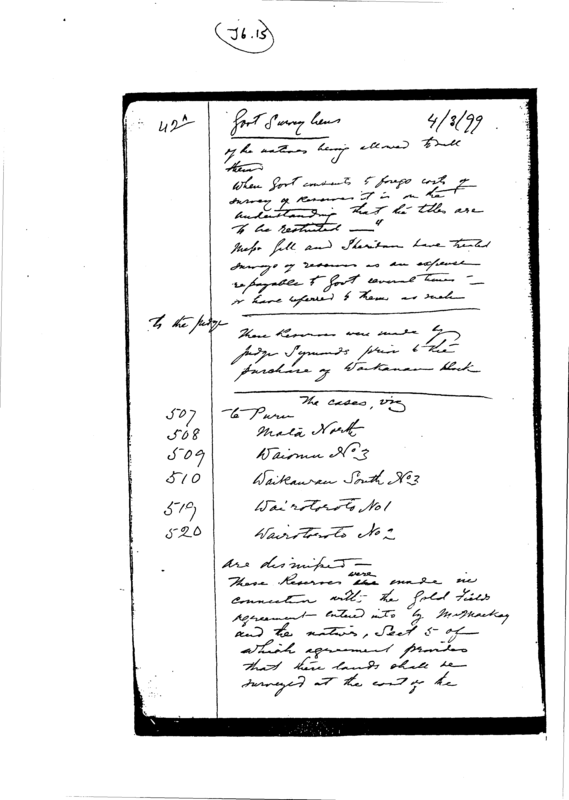 J6.15
42A Govt Survey liens 4/3/99
of the natives being allowed to sell
them
When Govt consents to forego costs of
survey of Reserves it is on the
understanding that the titles are
to be restricted — "
Messrs Gill and Sheridan have treated
surveys of reserves as an expense
repayable to Govt several times —
or have referred to them as such
To the Judge These Reserves were made by
Judge Symonds prior to the
purchase of Waikanae block
The cases, viz
507 Te Puru
508 Mata North
509 Waiomu No 3
510 Waikawau South No 3
519 Wairotoroto No 1
520 Wairotoroto No 2
are dismissed —
These Reserves were made in
connection with the Gold Fields
agreement entered into by Mr Mackay
and the natives, Sect 5 of
which agreement provides
that these lands shall be
surveyed at the cost of the